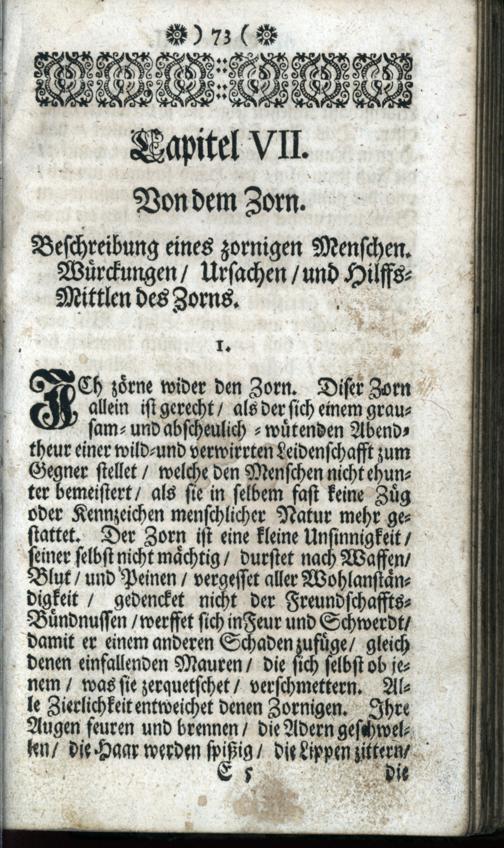 ) 73 (
Capitel VII.
Von dem Zorn.
Beschreibung eines zornigen Menschen.
Würckungen / Ursachen / und Hilffs-
Mittlen des Zorns.
1.
ICh zörne wider den Zorn. Diser Zorn
allein ist gerecht / als der sich einem grau-
sam- und abscheulich - wütenden Abend-
theur einer wild-und verwirrten Leidenschafft zum
Gegner stellet / welche den Menschen nicht ehun-
ter bemeistert / als sie in selbem fast keine Züg
oder Kennzeichen menschlicher Natur mehr ge-
stattet. Der Zorn ist eine kleine Unsinnigkeit /
seiner selbst nicht mächtig / durstet nach Waffen /
Blut / und Peinen / vergesset aller Wohlanstän-
digkeit / gedencket nicht der Freundschaffts-
Bündnussen / werffet sich in Feur und Schwerdt /
damit er einem anderen Schaden zufüge / gleich
denen einfallenden Mauren / die sich selbst ob je-
nem / was sie zerquetschet / verschmettern. Al-
le Zierlichkeit entweichet denen Zornigen. Ihre
Augen feuren und brennen / die Adern geschwel-
len / die Haar werden spitzig / die Lippen zittern /
E 5 die